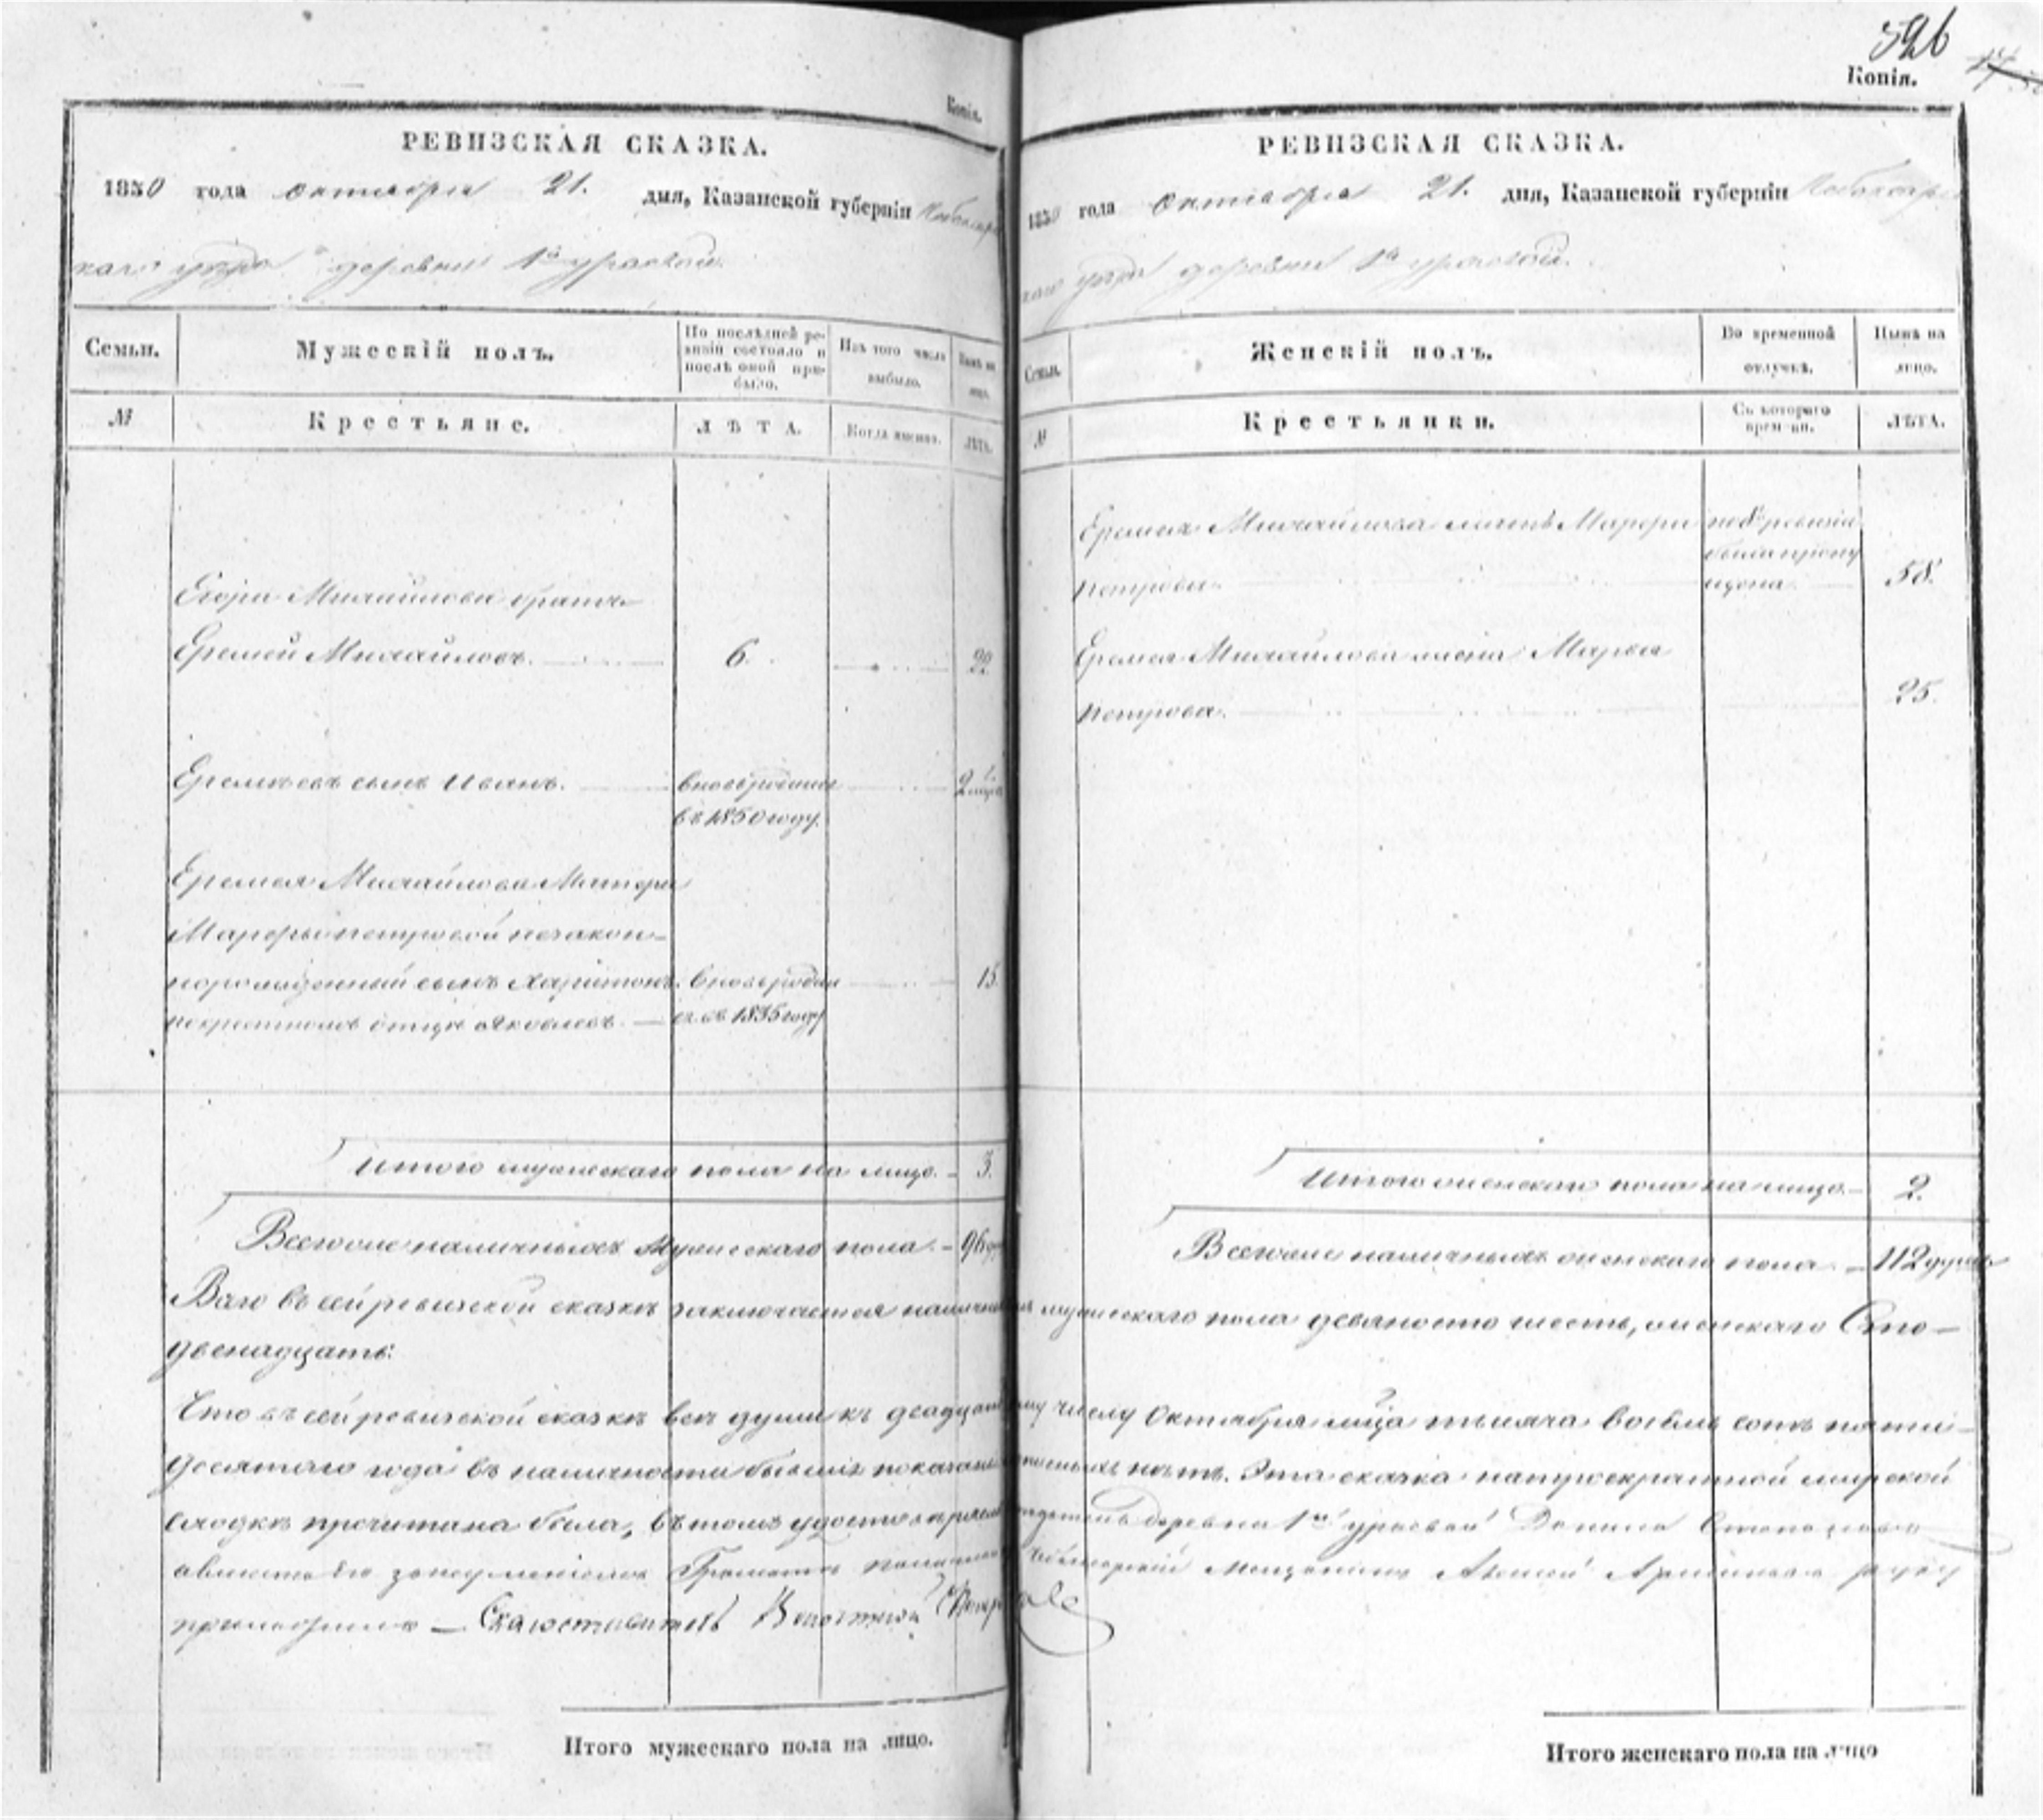 326
Копія.
Копія.
РЕВИЗСКАЯ СКАЗКА.
1850 года октября 21. дня, Казанской губерніи Чебоксарс
каго уѣзда деревни 1й урасовой.
Семьи.
Мужескій полъ.
По послѣдней ре-
визіи состояло и
послѣ оной при-
было.
Изъ того числа
выбыло.
Нынѣ на
лицо.
№
Крестьяне.
ЛѢТА.
Когда именно.
ЛѢТА.
Егора Михайлова братъ
Еремей Михайловъ. 6. 22.
Еремѣевъ сынъ Иванъ. вновьрожденъ
въ 1850 году.
Еремея Михайлова Матери
Марфы петровой незакон-
норожденный сынъ Харитонъ. вновьродил 15.
покрестномъ отцѣ Яковлевъ. — ся въ 1835 году
Итого мужескаго пола на лицо. – 3.
Всегоже наличныхъ Мужескаго пола. – 96
РЕВИЗСКАЯ СКАЗКА.
1850 года Октября 21. дня, Казанской губерніи Чебоксарс
каго уѣзда деревни 1й урасовой.
Семьи.
Женскій полъ.
Во временной
отлучкѣ.
Нынѣ на
лицо.
№
Крестьянки.
Съ котораго
времени.
ЛѢТА.
Еремея Михайлова мать Марфа по 8й ревизіи
была пропу
Петрова. щена 58.
Еремея Михайлова жена Марья
Петрова. 25.
Итого женскаго пола на лицо. – 2.
Всегоже наличныхъ женскаго пола. – 112 душъ
Всего въ сей ревизской сказкѣ заключается наличныхъ мужескаго пола девяносто шесть, женскаго Сто–
двенадцать.
Что въ сей ревизской сказкѣ всѣ души къ двадцать му числу Октября мца тысяча восемь сотъ пяти–
десятаго года въ наличности бывшія показаны нѣтъ. Эта сказка на мірской
сходкѣ прочитана была, въ томъ деревни 1й урасовой Данила
Чебоксарскій Мещанинъ Алексѣй руку
приложилъ —
Итого мужескаго пола на лицо.
Итого женскаго пола на лицо